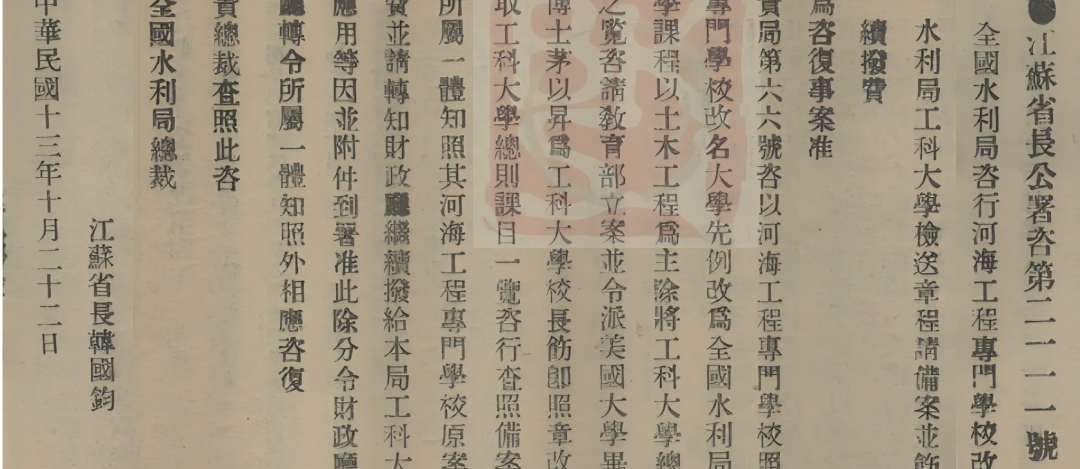 ●江蘇省長公署咨第二一一一號
全國水利局咨行河海工程專門學校改
水利局工科大學檢送章程請備案並飭
續撥費
爲咨復事案准
貴局第六六號咨以河海工程專門學校照
專門學校改名大學先例改爲全國水利局
學課程以土木工程爲主除將工科大學總
之覽咨請敎育部立案並令派美國大學畢
博士茅以昇爲工科大學校長飭卽照章改
取工科大學總則課目一覽咨行查照備案
所屬一體知照其河海工程專門學校原案
費並請轉知財政廳繼續撥給本局工科大
應用等因並附件到署准此除分令財政廳
廳轉令所屬一體知照外相應咨復
貴總裁查照此咨
全國水利局總裁
江蘇省長韓國鈞
中華民國十三年十月二十二日